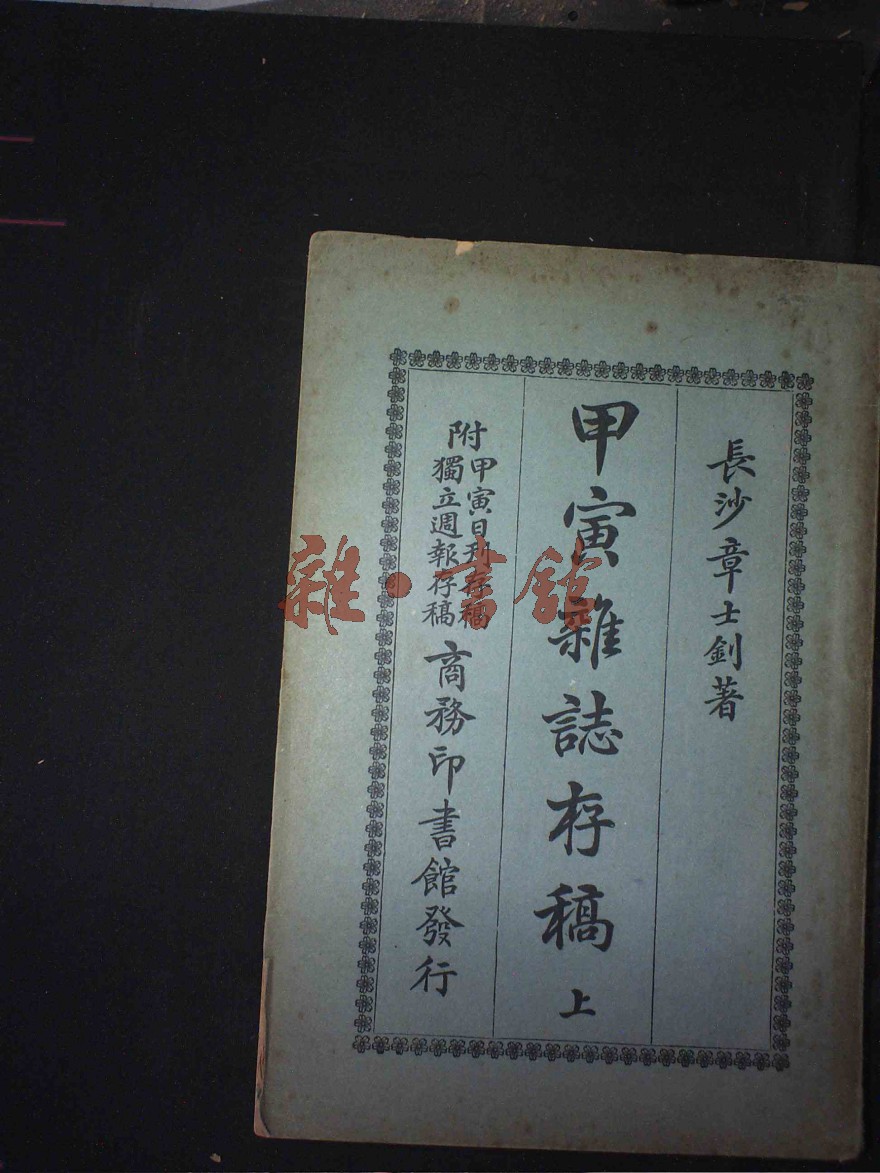 長沙章士釗著
甲寅雜誌存稿 上
附
甲寅日刊存稿
獨立週報存稿
商務印書館發行
雜·書館